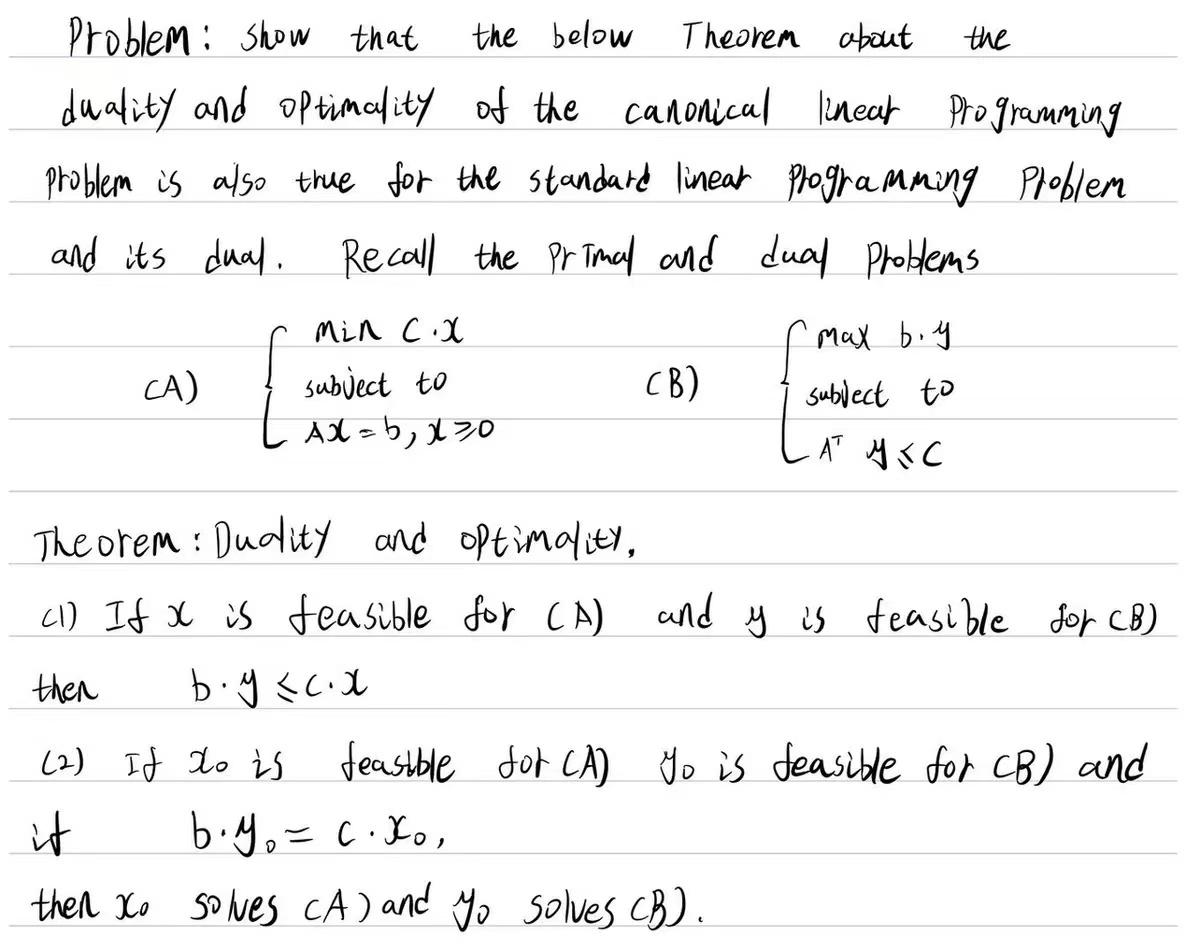 Problem: show that the below Theorem about the
duality and optimality of the canonical linear programming
problem is also true for the standard linear programming Problem
and its dual. Recall the Primal and dual Problems
(A) { min c·x subject to Ax = b, x ≥ 0 (B) { max b·y subject to Aᵀ y ≤ c
Theorem: Duality and optimality.
(1) If x is feasible for (A) and y is feasible for (B)
then b·y ≤ c·x
(2) If x₀ is feasible for (A) y₀ is feasible for (B) and
if b·y₀ = c·x₀,
then x₀ solves (A) and y₀ solves (B).